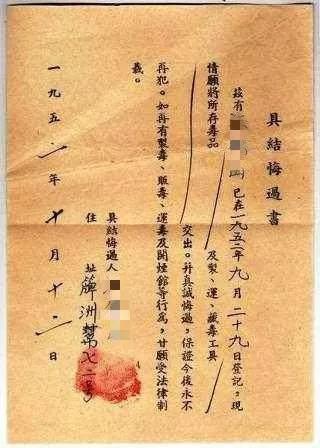 具結悔過書
茲有 已在一九五二年九月二十九日登記，現
情願將所存毒品 及製、運、藏毒工具
交出。幷真誠悔過，保證今後永不
再犯。如再有製毒、販毒、運毒及開煙館等行為，甘願受法律制
裁。
具結悔過人
住址 簰洲 七二号
一九五二年十月十二日